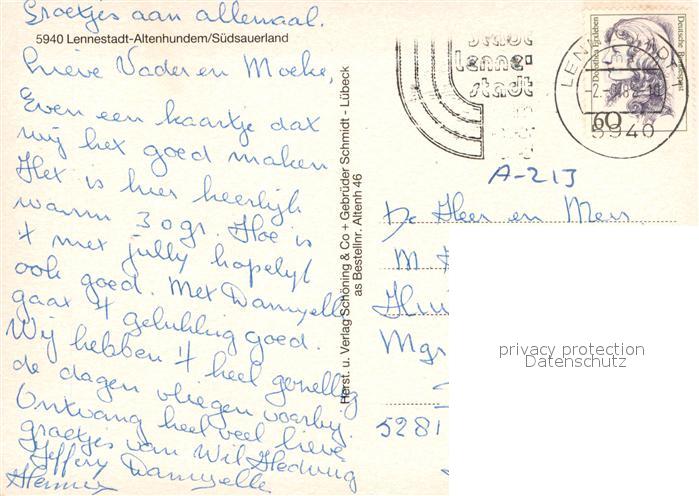 Groetjes aan allemaal.
5940 Lennestadt-Altenhundem/Südsauerland
Lieve Vader en Moeke,
Even een kaartje dat
wij het goed maken
Het is hier heerlijk
warm 30 gr. Hoe is
't met jully hopelijk
ook goed. Met Dannyelle
gaat 't gelukkig goed.
Wij hebben 't heel gezellig
de dagen vliegen voorbij.
Ontvang heel veel lieve
groetjes van Wil Hedwig
Jeffery Dannyelle
Herst. u. Verlag Schöning & Co + Gebrüder Schmidt - Lübeck
as Bestellnr. Altenh 46
stadt
lenne-
stadt
Dorothea Erxleben
Deutsche Bundespost
60
5940
A-213
De Heer en Mevr.
M
Mgr
5281
privacy protection
Datenschutz